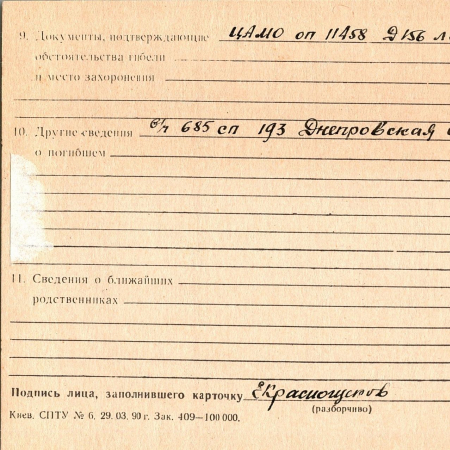 9. Документы, подтверждающие ЦАМО оп 11458 Д 156 л
обстоятельства гибели
и место захоронения
10. Другие сведения в/ч 685 сп 193 Днепровская
о погибшем
11. Сведения о ближайших
родственниках
Подпись лица, заполнившего карточку
(разборчиво)
Киев. СПТУ № 6. 29. 03. 90 г. Зак. 409—100 000.